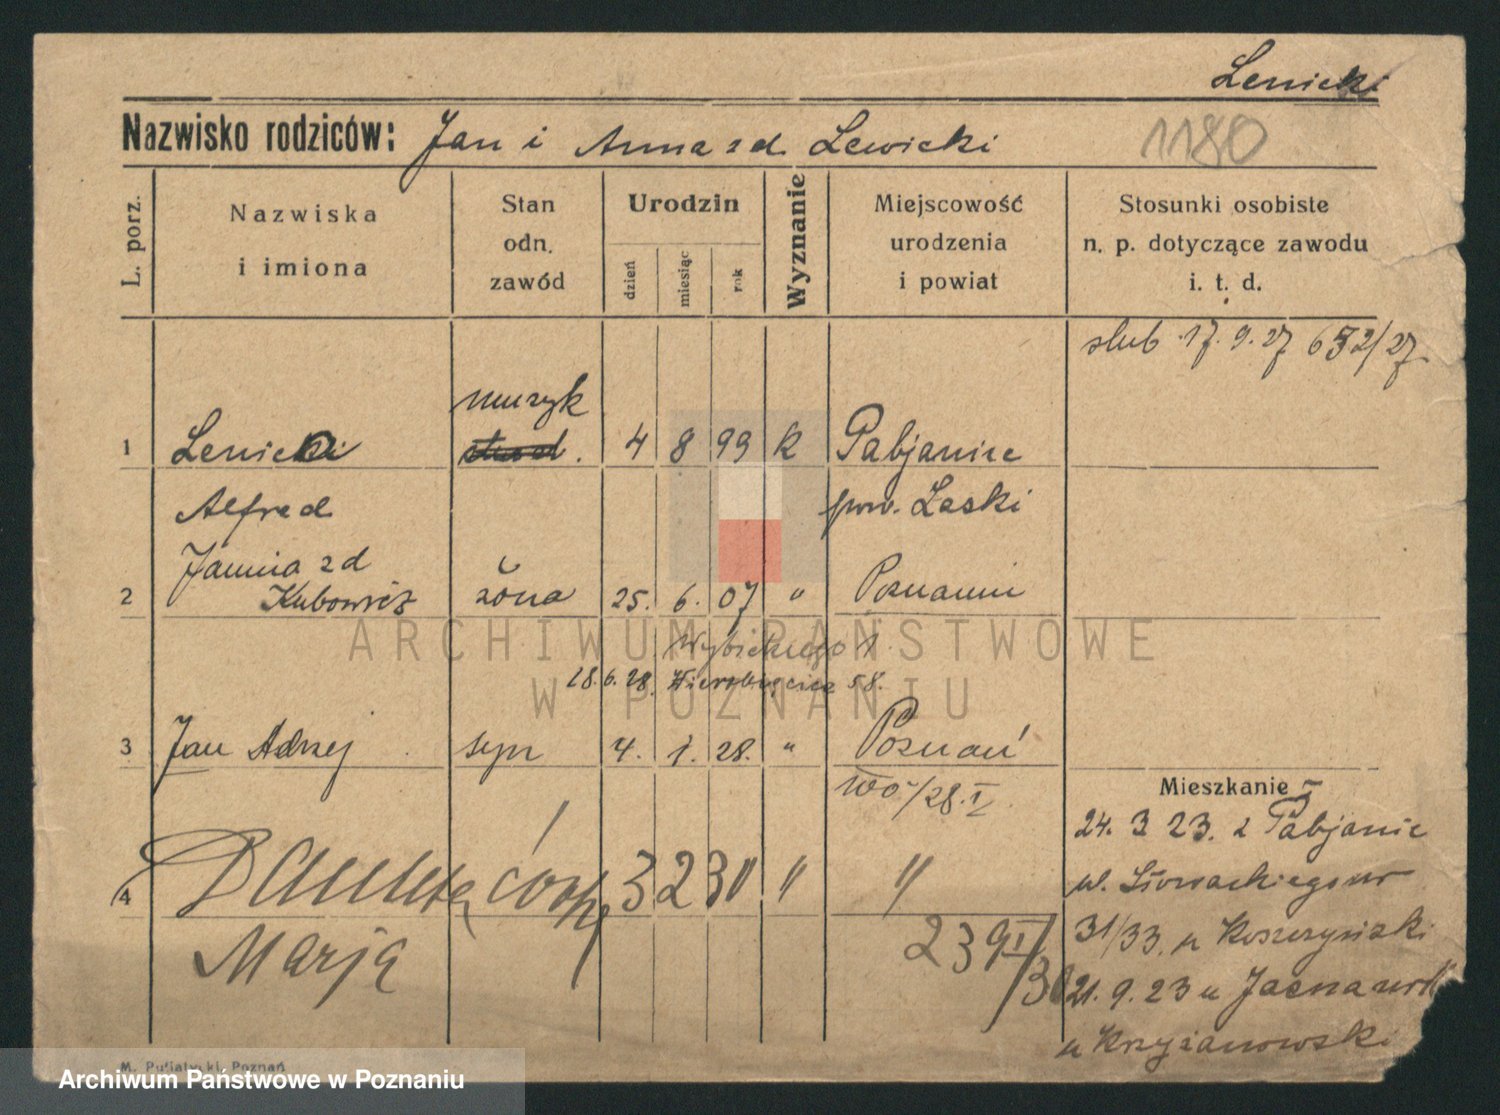 Lenicki
Nazwisko rodziców: Jan i Anna zd. Lewicki
1180
L. porz.
Nazwiska
i imiona
Stan
odn.
zawód
Urodzin
dzień
miesiąc
rok
Wyznanie
Miejscowość
urodzenia
i powiat
Stosunki osobiste
n. p. dotyczące zawodu
i. t. d.
slub 17. 9. 27 652/27
muzyk
1 Lenicki stud. 4 8 99 k Pabjanice
Alfred pow. Łaski
Janina zd
2 Kubowicz żona 25. 6. 07 " Poznaniu
Wybickiego 1.
28.6.28. Wierzbięcice 58.
3 Jan Adrzej syn 4. 1. 28. " Poznań
100/28.I
Mieszkanie
24. 3 23. z Pabjanic
4 Danuta córka 3 2 30 " "
ul. Słowackiego nr
Marja
239I/30
31/33. u Koszczyński
21. 9. 23 u Jasna nr
u Krzyżanowski
ARCHIWUM PAŃSTWOWE
W POZNANIU
M. Putiatycki, Poznań
Archiwum Państwowe w Poznaniu